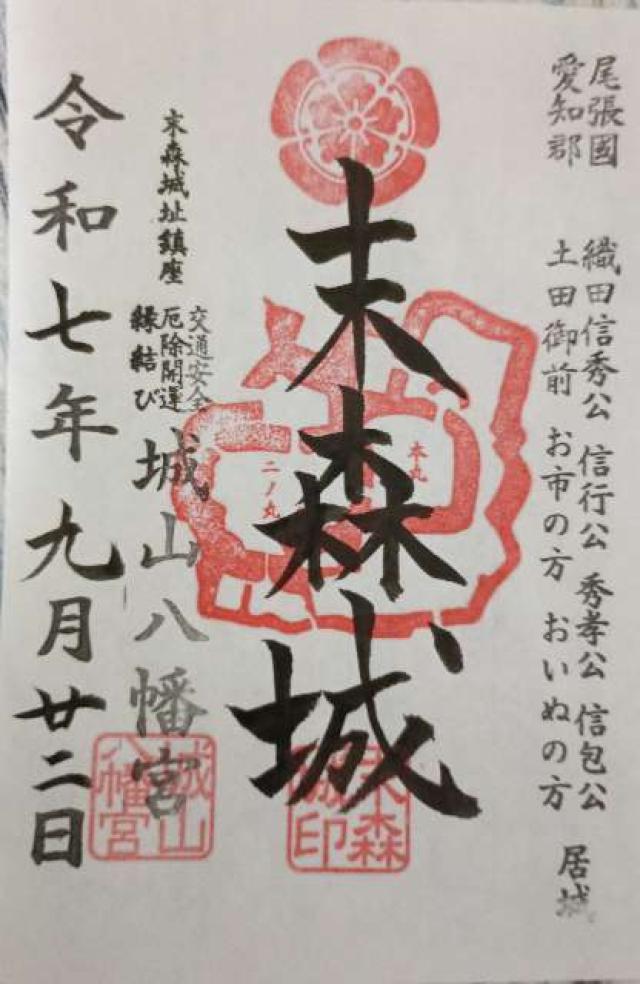 尾張國
愛知郡
織田信秀公 信行公 秀孝公 信包公
土田御前 お市の方 おいぬの方
居城
末森城
本丸
二ノ丸
末森城印
末森城址鎮座
交通安全
厄除開運
縁結び
城山八幡宮
城山八幡宮
令和七年九月廿二日